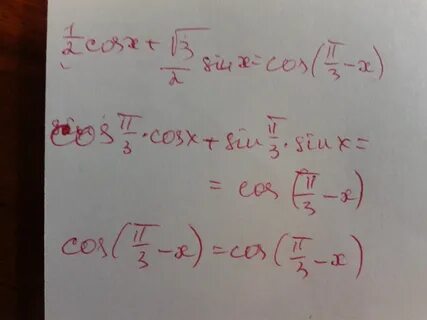 1/2 cosx + √3/2 sinx = cos(π/3 - x)
cos π/3 · cosx + sin π/3 · sinx =
= cos (π/3 - x)
cos(π/3 - x) = cos(π/3 - x)